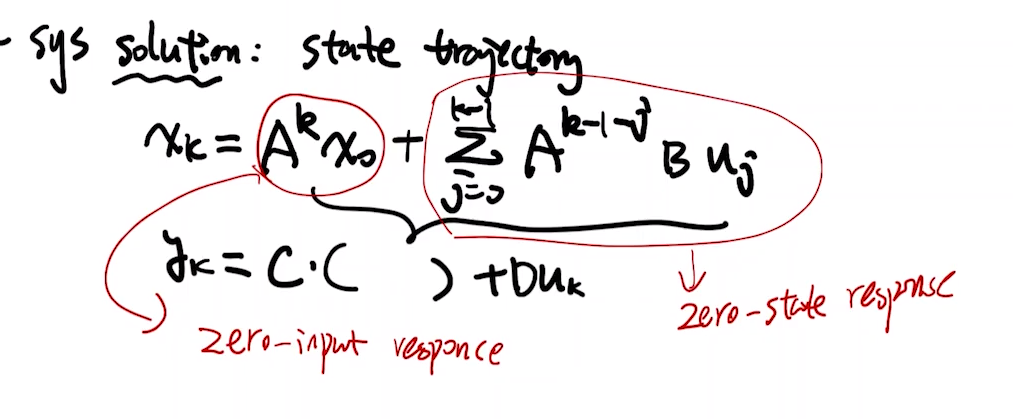 - sys solution: state trajectory
x_k = A^k x_0 + \sum_{j=0}^{k-1} A^{k-1-j} B u_j
y_k = C·(      ) + Du_k
zero-state response
zero-input responce